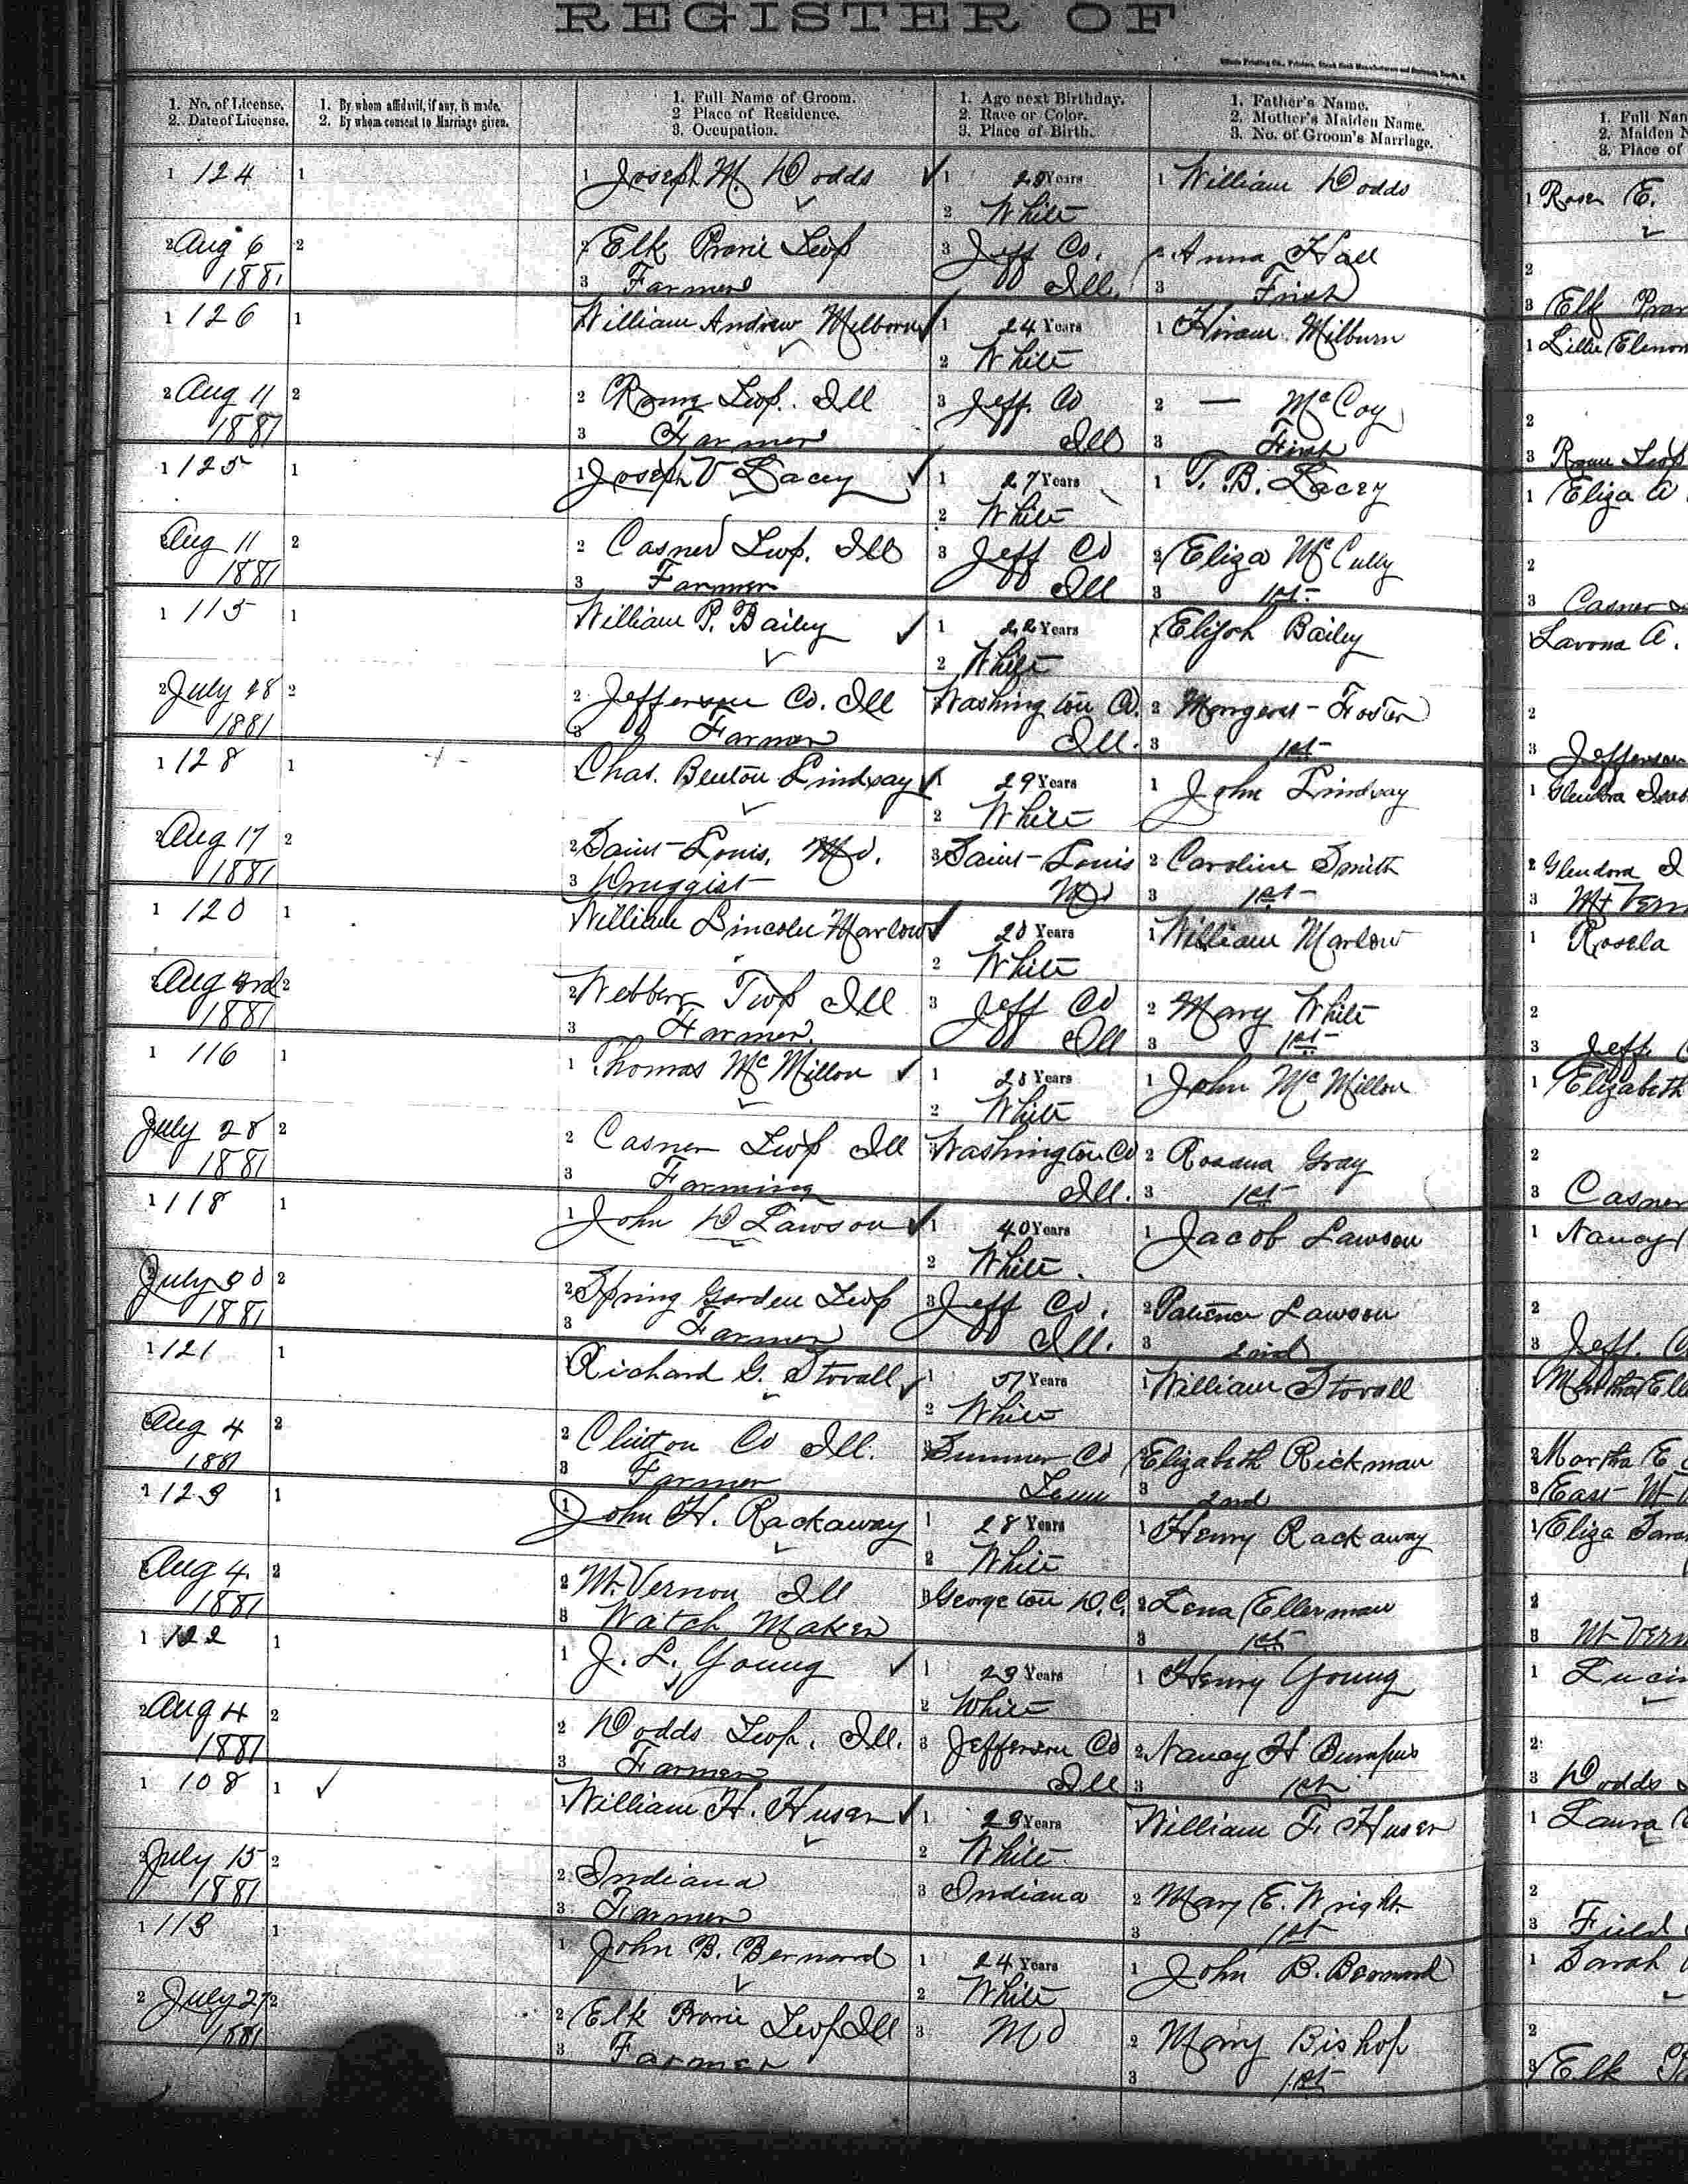 REGISTER OF
1. No. of License. 1. By whom affidavit, if any, is made. 1. Full Name of Groom. 1. Age next Birthday. 1. Father's Name. 1. Full Nam
2. Date of License. 2. By whom consent to Marriage given. 2 Place of Residence. 2. Race or Color. 2. Mother's Maiden Name. 2. Maiden N
3. Occupation. 3. Place of Birth. 3. No. of Groom's Marriage. 3. Place of
1 124 1 1 Joseph M. Dodds 1 Years 1 William Dodds 1 E.
2 White
2 Aug 6 2 2 Elk Prarie Twp 3 Jeff Co. 2 Anna Hall 2
1881 3 Farmer Ill. 3 First 3 Elk Prar
1 126 1 William Andrew Milborn 1 24 Years 1 Hiram Milburn 1 Lillie Elenor
2 White
2 Aug 11 2 2 Rome Twp. Ill 3 Jeff. Co 2 — McCoy 2
1881 3 Farmer Ill 3 First 3 Rome Twp
1 125 1 1 Joseph V Lacey 1 27 Years 1 T. B. Lacey 1 Eliza A
2 White
Aug 11 2 2 Casner Twp. Ill 3 Jeff Co 2 Eliza McCully 2
1881 3 Farmer Ill 3 1st 3 Casner
1 115 1 William P. Bailey 1 22 Years Elijah Bailey Lavona A.
2 White
2 July 28 2 2 Jefferson Co. Ill Washington Co. 2 Margeret Foster 2
1881 3 Farmer Ill. 3 1st 3 Jefferson
1 128 1 Chas. Benton Lindsay 1 29 Years 1 John Lindsay 1
2 White
2 Aug 17 2 2 Saint Louis, Mo. 3 Saint Louis 2 Caroline Smith 2 Glendora I
1881 3 Druggist Mo 3 1st 3 Mt Vern
1 120 1 William Lincoln Marlow Years 1 William Marlow 1 Rosela
2 White
2 Aug 3rd 2 2 Webber Twp Ill 3 Jeff Co 2 Mary White 2
1881 3 Farmer. Ill 3 1st 3 Jeff. C
1 116 1 1 Thomas McMillon 1 Years 1 John McMillon 1 Elizabeth
2 White
July 28 2 2 Casner Twp Ill Washington Co 2 Gray 2
1881 3 Farming Ill. 3 1st 3 Casner
1 118 1 1 John D Lawson 1 40 Years 1 Jacob Lawson 1 Nancy
2 White
2 July 30 2 2 Spring Garden Twp 3 Jeff Co. 2 Patience Lawson 2
1881 3 Farmer Ill. 3 2nd 3 Jeff. C
1 121 1 1 Richard G. Stovall 1 Years 1 William Stovall Martha Elle
2 White
2 Aug 4 2 2 Clinton Co Ill. 3 Sumner Co 2 Elizabeth Rickman 2 Martha E
1881 3 Farmer Tenn 3 2nd 3 East Mt V
1 123 1 1 John H. Rackaway 1 28 Years 1 Henry Rackaway 1 Eliza Sara
2 White
2 Aug 4. 2 2 Mt. Vernon Ill 3 Georgetown D.C. 2 Lena Ellerman 2
1881 3 Watch Maker 3 1st 3 Mt Vern
1 122 1 1 J. L. Young 1 23 Years 1 Henry Young 1 Lucin
2 White
2 Aug 4 2 2 Dodds Twp. Ill. 3 Jefferson Co 2 Nancy H Bumpus 2
1881 3 Farmer Ill 3 1st 3 Dodds
1 108 1 1 William H. Huser 1 23 Years William F. Huser 1 Laura
2 White
2 July 15 2 2 Indiana 3 Indiana 2 Mary E. Wright 2
1881 3 Farmer 3 1st 3 Field
1 113 1 1 John B. Bernard 1 24 Years 1 John B. Bernard 1 Sarah
2 White
2 July 27 2 2 Elk Prarie Twp Ill 3 Mo 2 Mary Bishop 2
1881 3 Farmer 3 1st 3 Elk